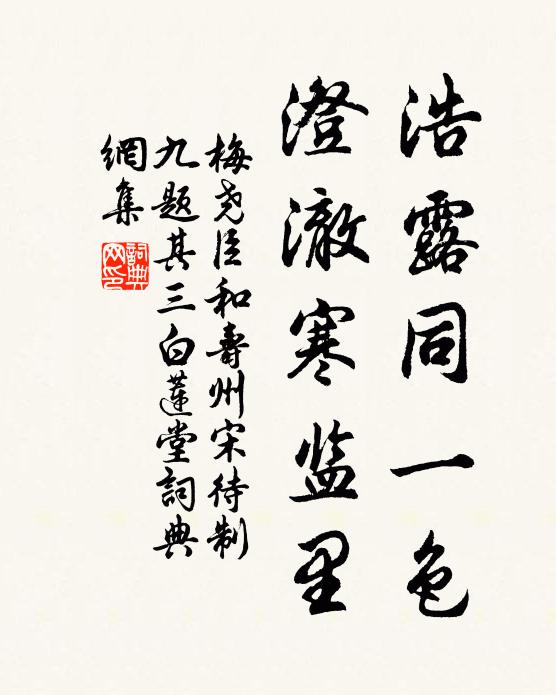 浩露同一色
澄澈寒监里
梅尧臣和寿州宋待制
九题其三白莲堂词典
網集
詞典网印